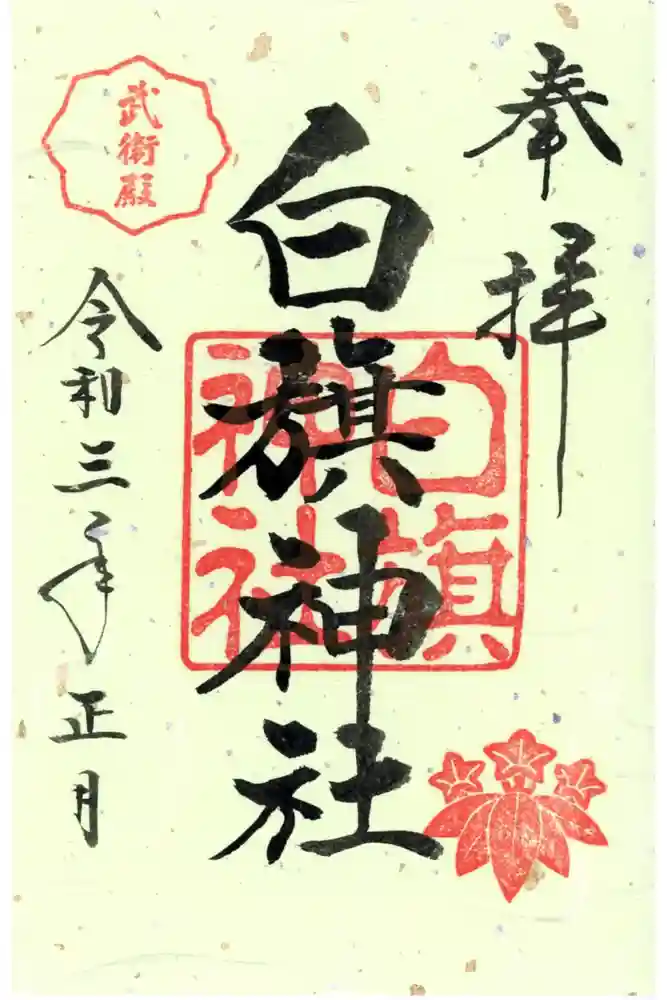 奉拝
白旗神社
白旗
神社
武衛殿
令和三年正月